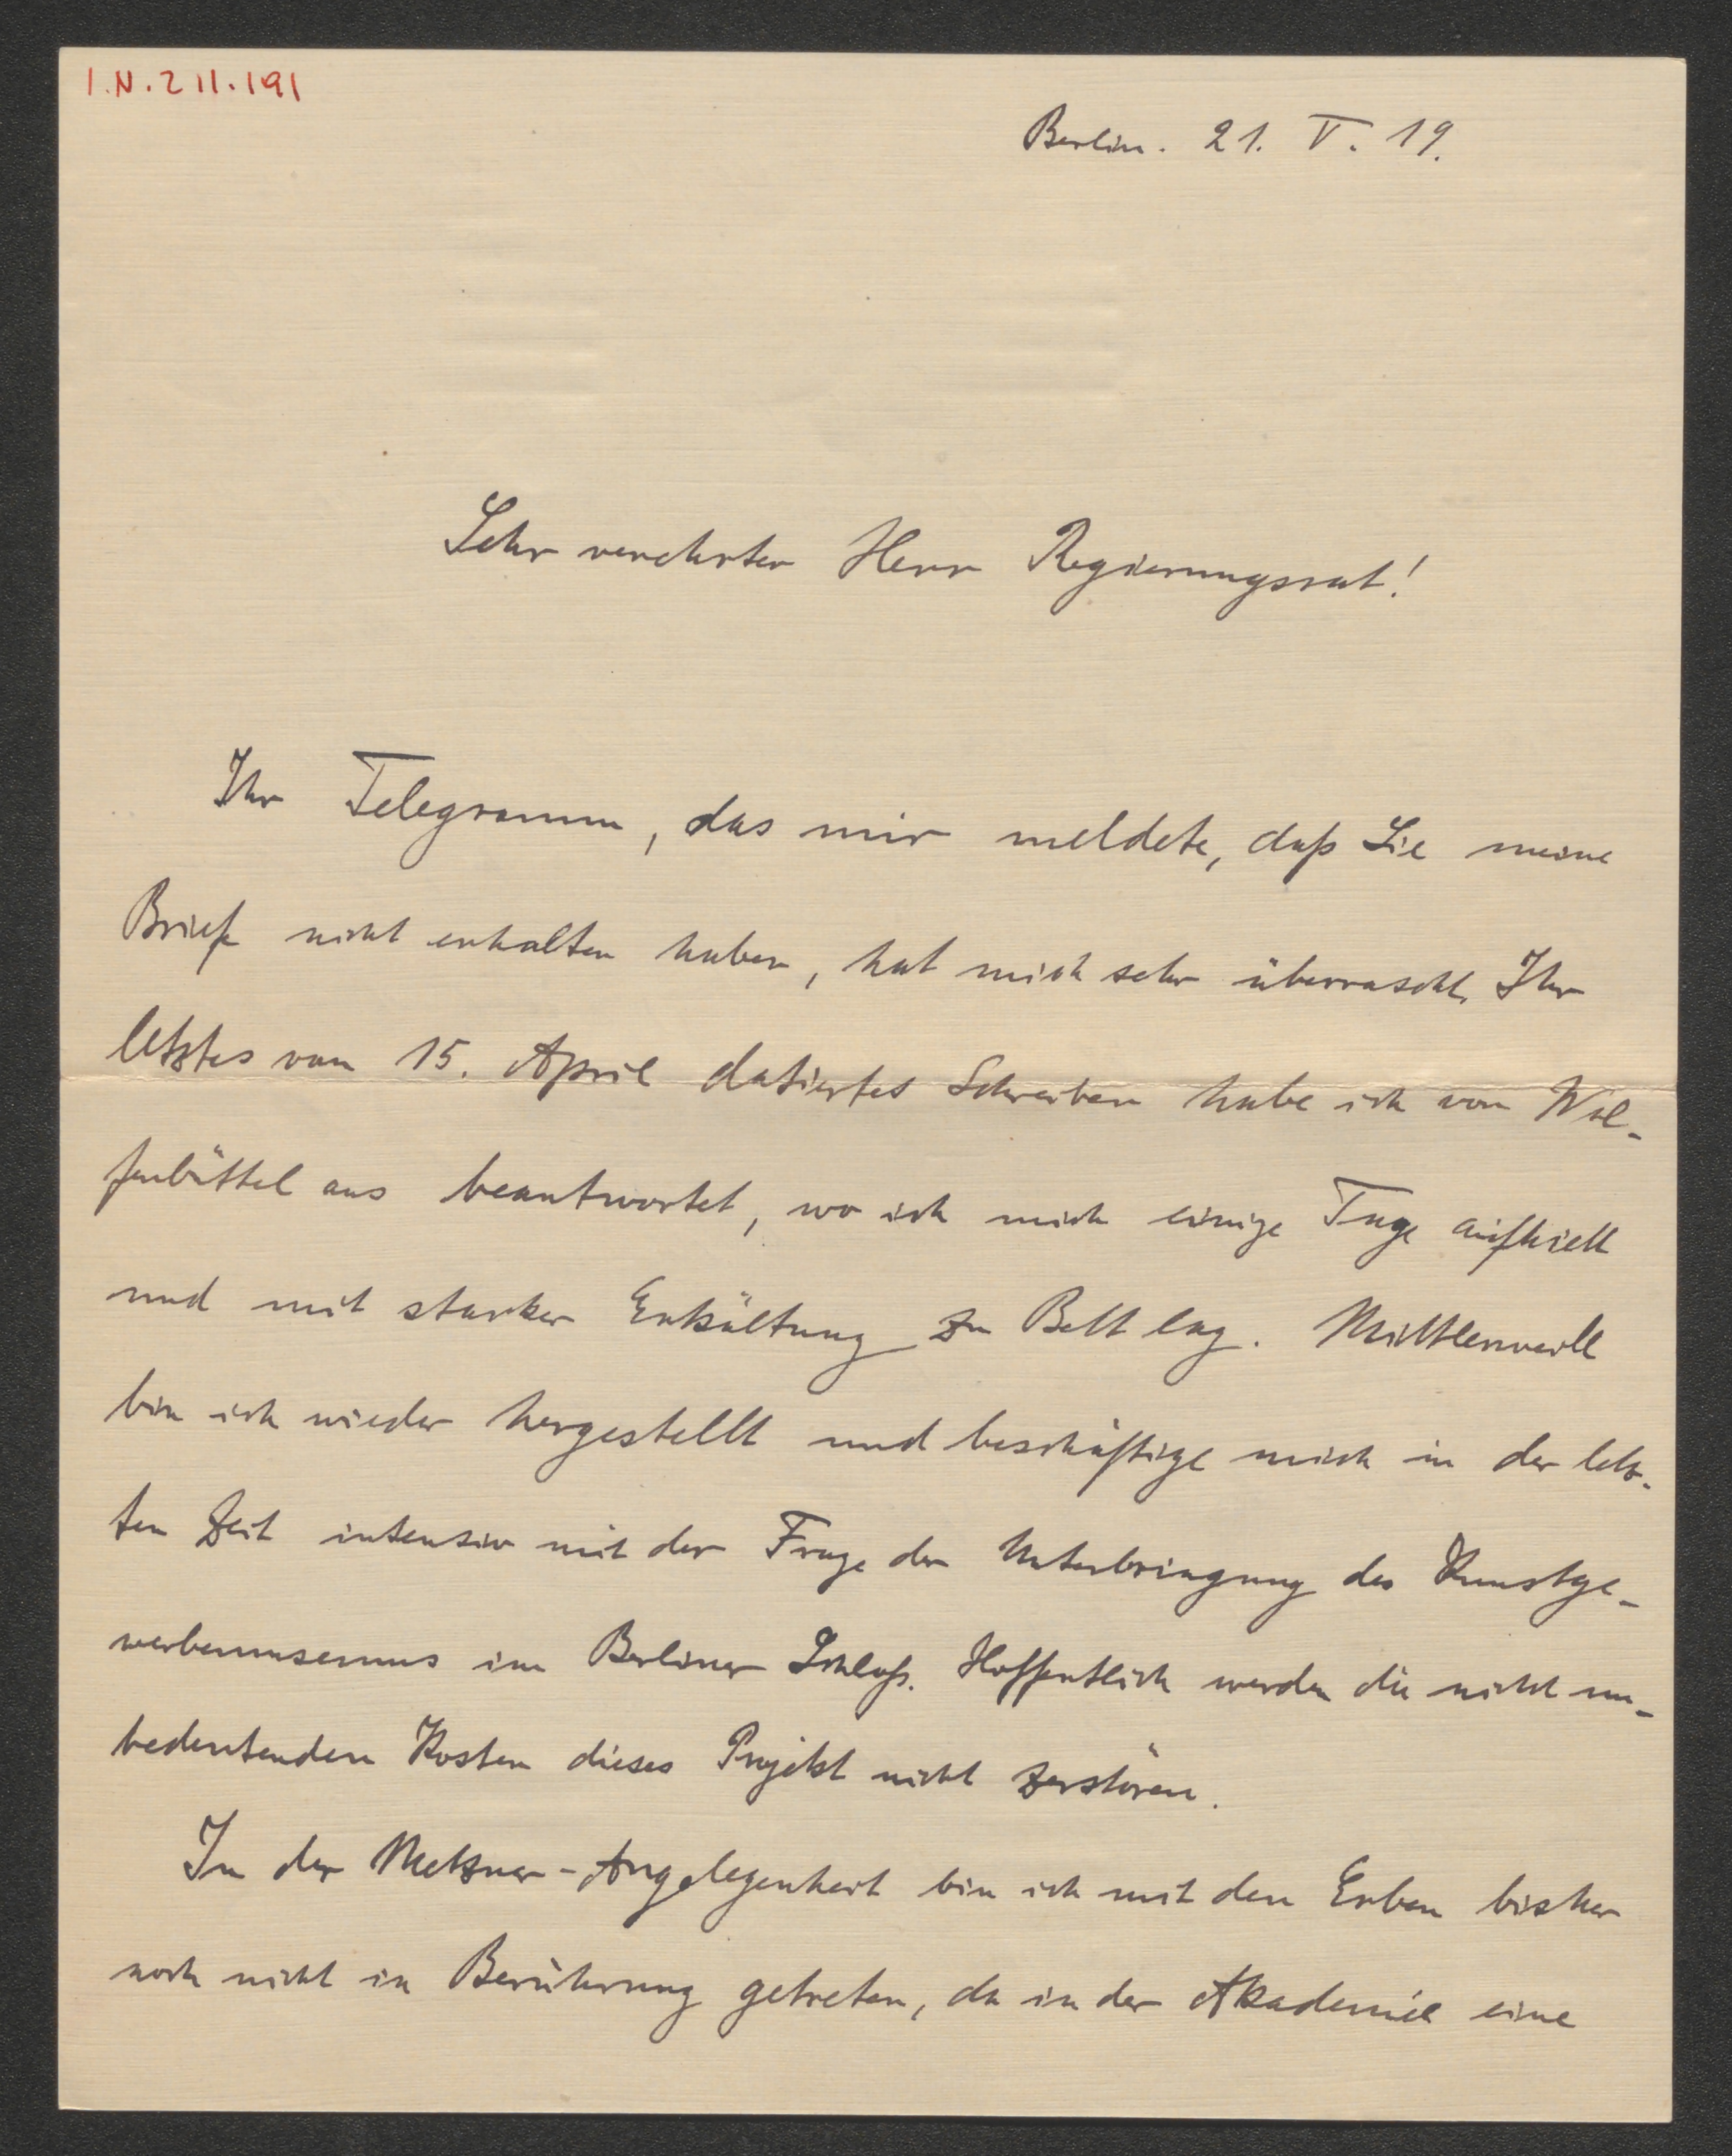 I.N. 211.191
Berlin. 21. V. 19.
Sehr verehrter Herr Regierungsrat!
Ihr Telegramm, das mir meldete, daß Sie meine
Briefe nicht erhalten haben, hat mich sehr überrascht. Ihr
letztes vom 15. April datiertes Schreiben habe ich von Wol-
fenbüttel aus beantwortet, wo ich mich einige Tage aufhielt
und mit starker Erkältung zu Bett lag. Mittlerweile
bin ich wieder hergestellt und beschäftige mich in der letz-
ten Zeit intensiv mit der Frage der Unterbringung des Kunstge-
werbemuseums im Berliner Schloß. Hoffentlich werden die nicht un-
bedeutenden Kosten dieses Projekt nicht zerstören.
In der Metzner-Angelegenheit bin ich mit den Erben bisher
noch nicht in Berührung getreten, da in der Akademie eine